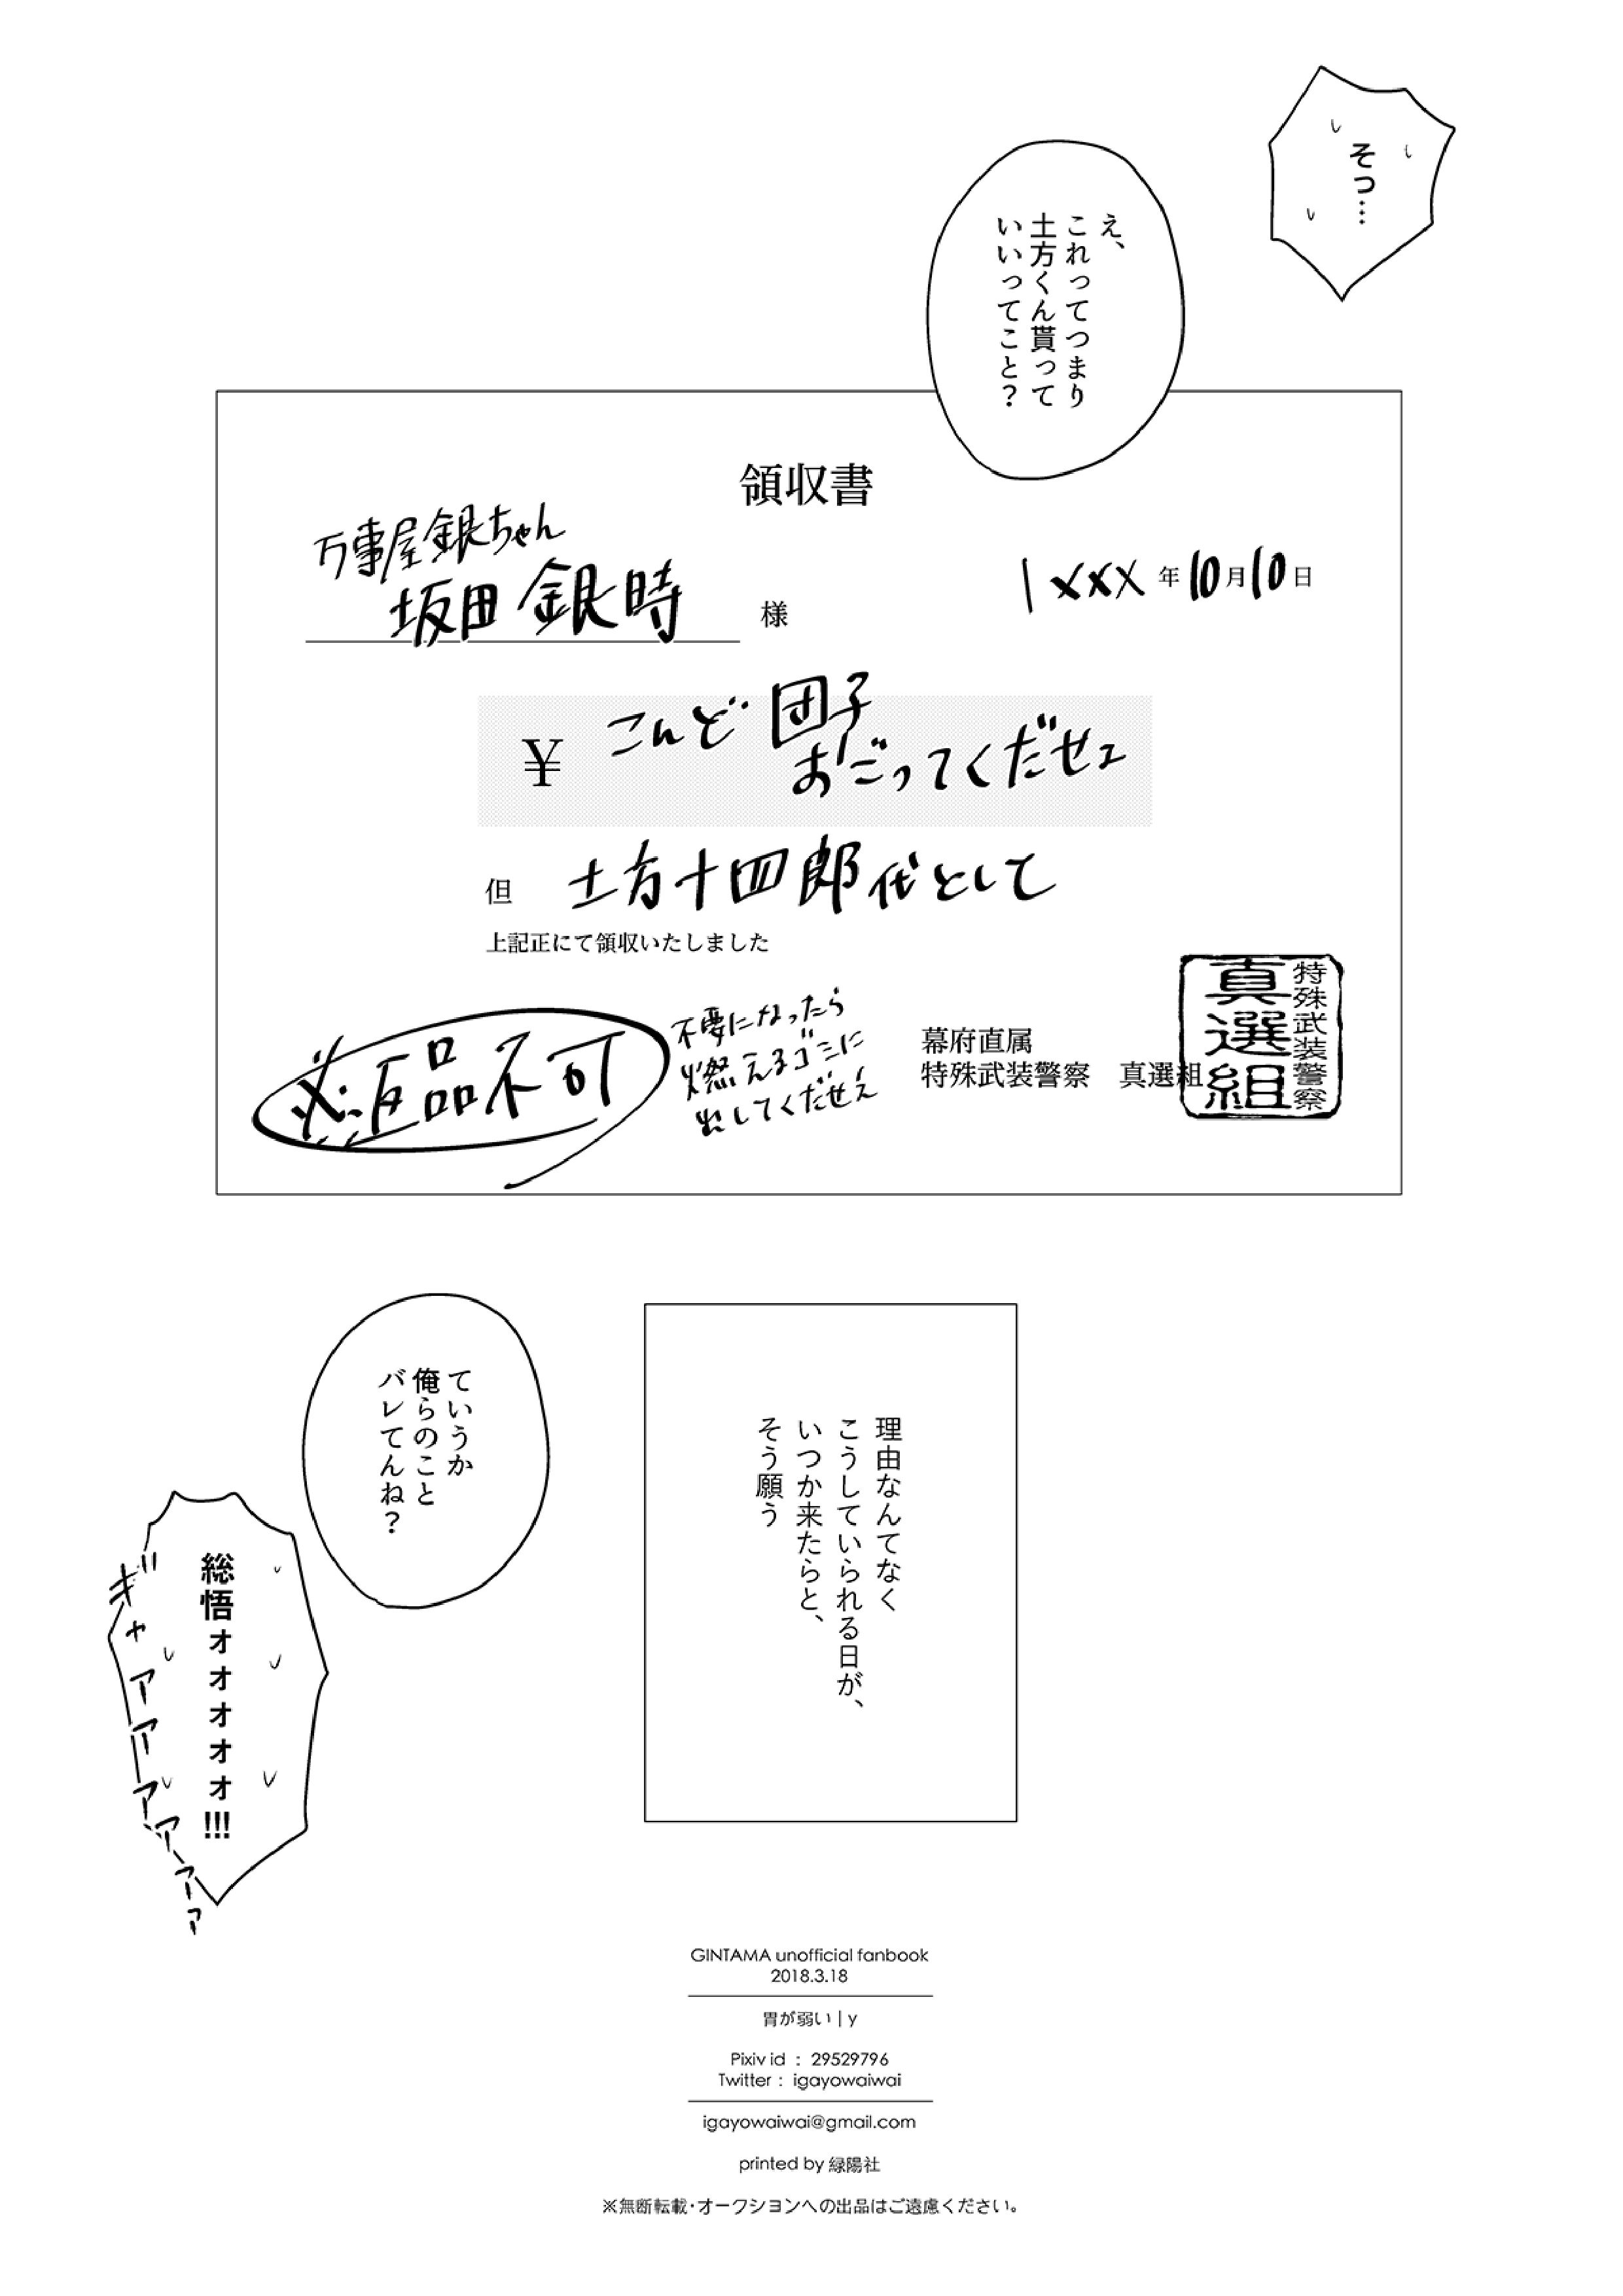 そっ…
え、
これってつまり
土方くん貰って
いいってこと？
領収書
万事屋銀ちゃん
坂田銀時 様
1xxx年10月10日
¥ こんど団子
おごってくだせェ
但 土方十四郎代として
上記正にて領収いたしました
※返品不可
不要になったら
燃えるゴミに
出してくだせえ
幕府直属
特殊武装警察 真選組
特殊武装警察
真選組
理由なんてなく
こうしていられる日が、
いつか来たらと、
そう願う
ていうか
俺らのこと
バレてんね？
総悟ォォォォォ!!!
ギャアアアアアア
GINTAMA unofficial fanbook
2018.3.18
胃が弱い | y
Pixiv id : 29529796
Twitter : igayowaiwai
igayowaiwai@gmail.com
printed by 緑陽社
※無断転載・オークションへの出品はご遠慮ください。